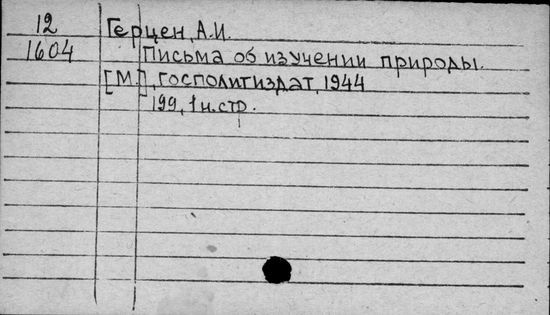 12 Герцен, А.И.
1604 Письма об изучении природы.
[М.], Госполитиздат, 1944
199, 1 н. стр.